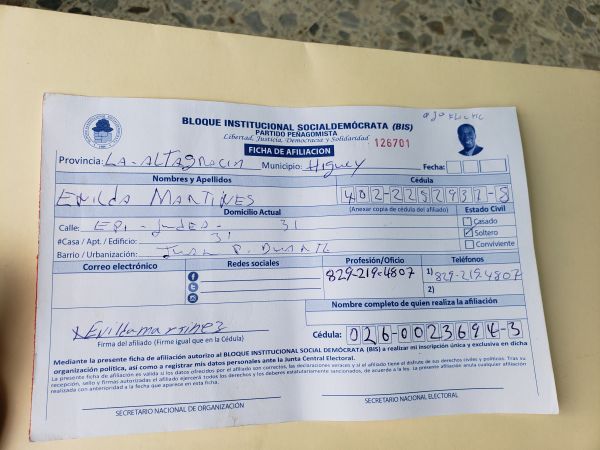 BLOQUE INSTITUCIONAL SOCIALDEMÓCRATA (BIS)
PARTIDO PEÑAGOMISTA
Libertad, Justicia, Democracia y Solidaridad
FICHA DE AFILIACION
126701
Provincia: LA-ALTAGRACIA Municipio: Higuey Fecha:
Nombres y Apellidos Cédula
ENILDA MARTINES 402-2252937-8
Domicilio Actual (Anexar copia de cédula del afiliado) Estado Civil
Calle: 31 Casado
#Casa / Apt. / Edificio: 31 Soltero
Barrio / Urbanización: JUAN P. DUARTE Conviviente
Correo electrónico Redes sociales Profesión/Oficio Teléfonos
829-219-4807 1) 829-219-4807
2)
Nombre completo de quien realiza la afiliación
Firma del afiliado (Firme igual que en la Cédula) Cédula: 026-0023694-3
Mediante la presente ficha de afiliación autorizo al BLOQUE INSTITUCIONAL SOCIAL DEMÓCRATA (BIS) a realizar mi inscripción única y exclusiva en dicha
organización política, así como a registrar mis datos personales ante la Junta Central Electoral.
La presente ficha de afiliación es valida si los datos ofrecidos por el afiliado son correctos, las declaraciones veraces y si el afiliado tiene el disfrute de sus derechos civiles y políticos. Tras su
recepción, sello y firmas autorizadas el afiliado ejercerá todos los derechos y los deberes estatutariamente sancionados, de acuerdo a la ley. la presente afiliación anula cualquier afiliación
realizada con anterioridad a la fecha que aparece en esta ficha.
SECRETARIO NACIONAL DE ORGANIZACIÓN SECRETARIO NACIONAL ELECTORAL